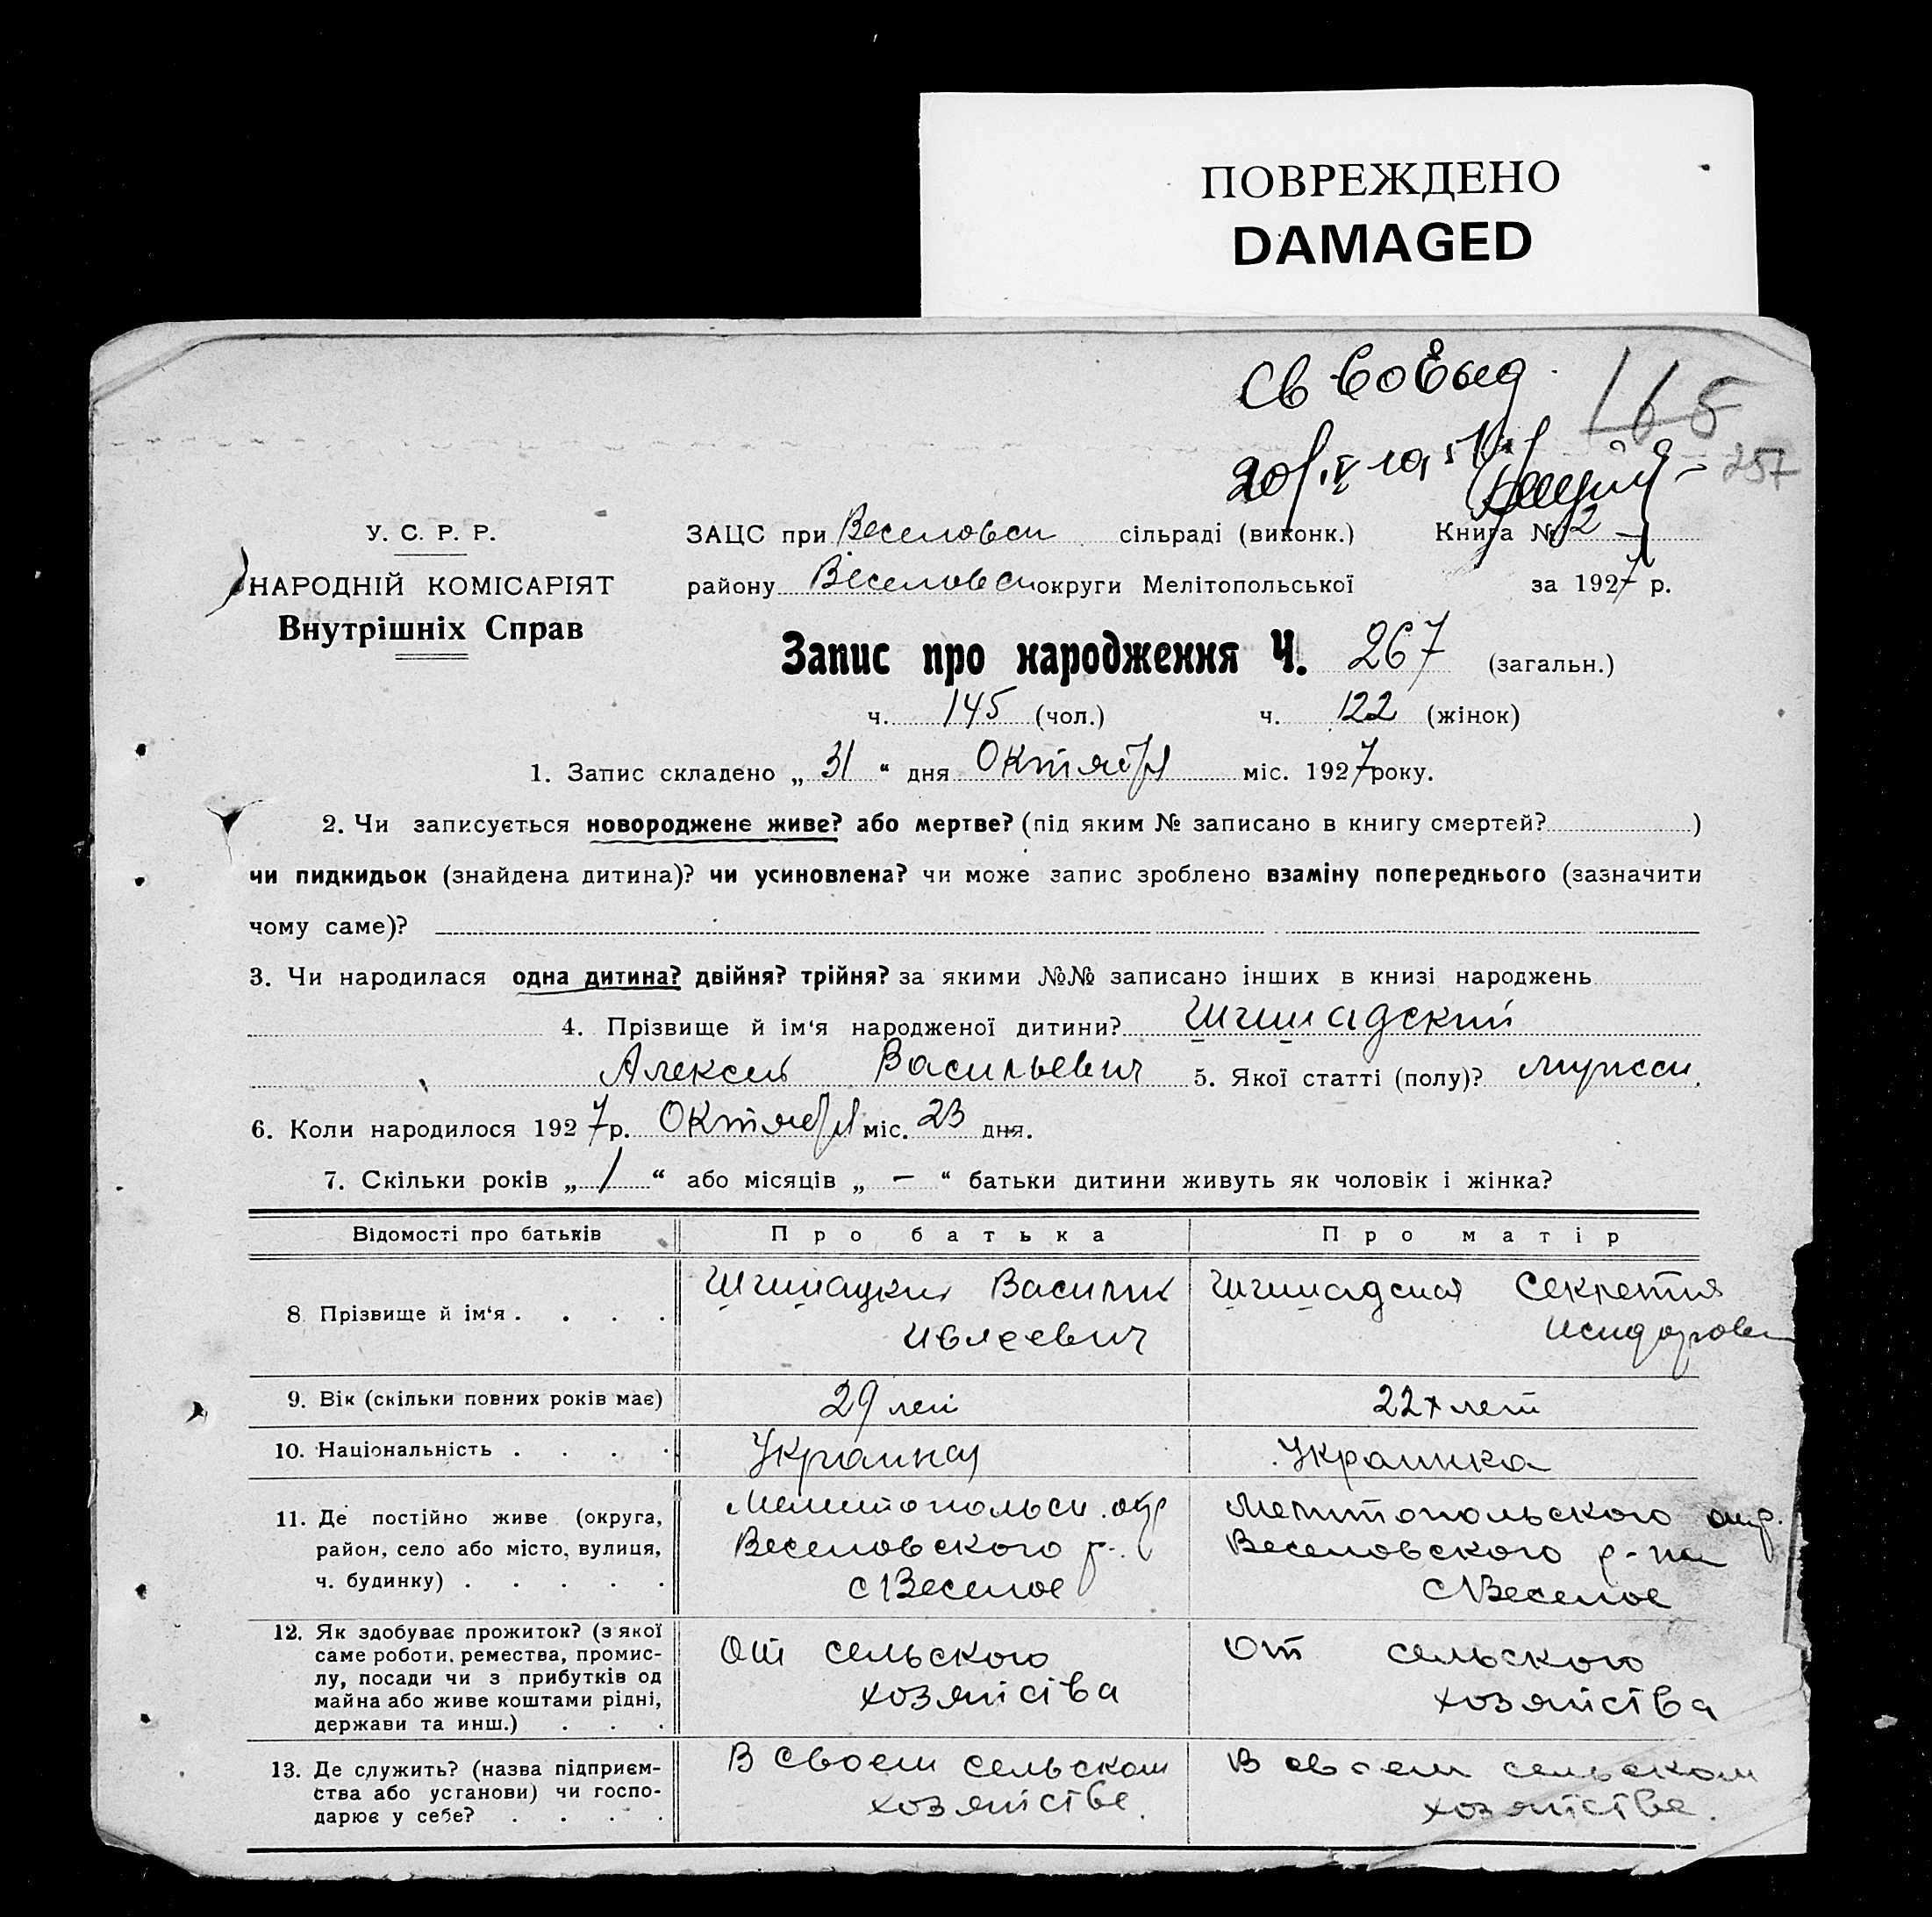 ПОВРЕЖДЕНО
DAMAGED
165
257
У. С. Р. Р.
НАРОДНІЙ КОМІСАРІЯТ
Внутрішніх Справ
ЗАЦС при Веселовск сільраді (виконк.) Книга № 2
району Веселовск округи Мелітопольської за 1927 р.
Запис про народження Ч. 267 (загальн.)
ч. 145 (чол.) ч. 122 (жінок)
1. Запис складено „ 31 “ дня Октября міс. 1927 року.
2. Чи записується новороджене живе? або мертве? (під яким № записано в книгу смертей? )
чи пидкидьок (знайдена дитина)? чи усиновлена? чи може запис зроблено взаміну попереднього (зазначити
чому саме)?
3. Чи народилася одна дитина? двійня? трійня? за якими №№ записано інших в книзі народжень
4. Прізвище й ім‘я народженої дитини? Шишадский
Алексей Васильевич 5. Якої статті (полу)? мужск.
6. Коли народилося 1927 р. Октября міс. 23 дня.
7. Скільки років „ 1 “ або місяців „ — “ батьки дитини живуть як чоловік і жінка?
Відомості про батьків Про батька Про матір
8 Прізвище й ім‘я . . . . Шишацкий Василий Шишадская Секлетия
Исидоровн
9. Вік (скільки повних років має) 29 лет 22х лет
10. Національність . . . . Украинец Украинка
11. Де постійно живе (округа,
район, село або місто, вулиця,
ч. будинку) . . . . .
Мелитопольск. окр
Веселовского р-.
с Веселое
Мелитопольского окр.
Веселовского р-на
с Веселое
12. Як здобуває прожиток? (з якої
саме роботи, ремества, промис-
лу, посади чи з прибутків од
майна або живе коштами рідні,
держави та инш.) . . .
От сельского
хозяйства
От сельского
хозяйства
13. Де служить? (назва підприєм-
ства або установи) чи госпо-
дарює у себе? . . . .
В своем сельском
хозяйстве.
В своем сельском
хозяйстве.